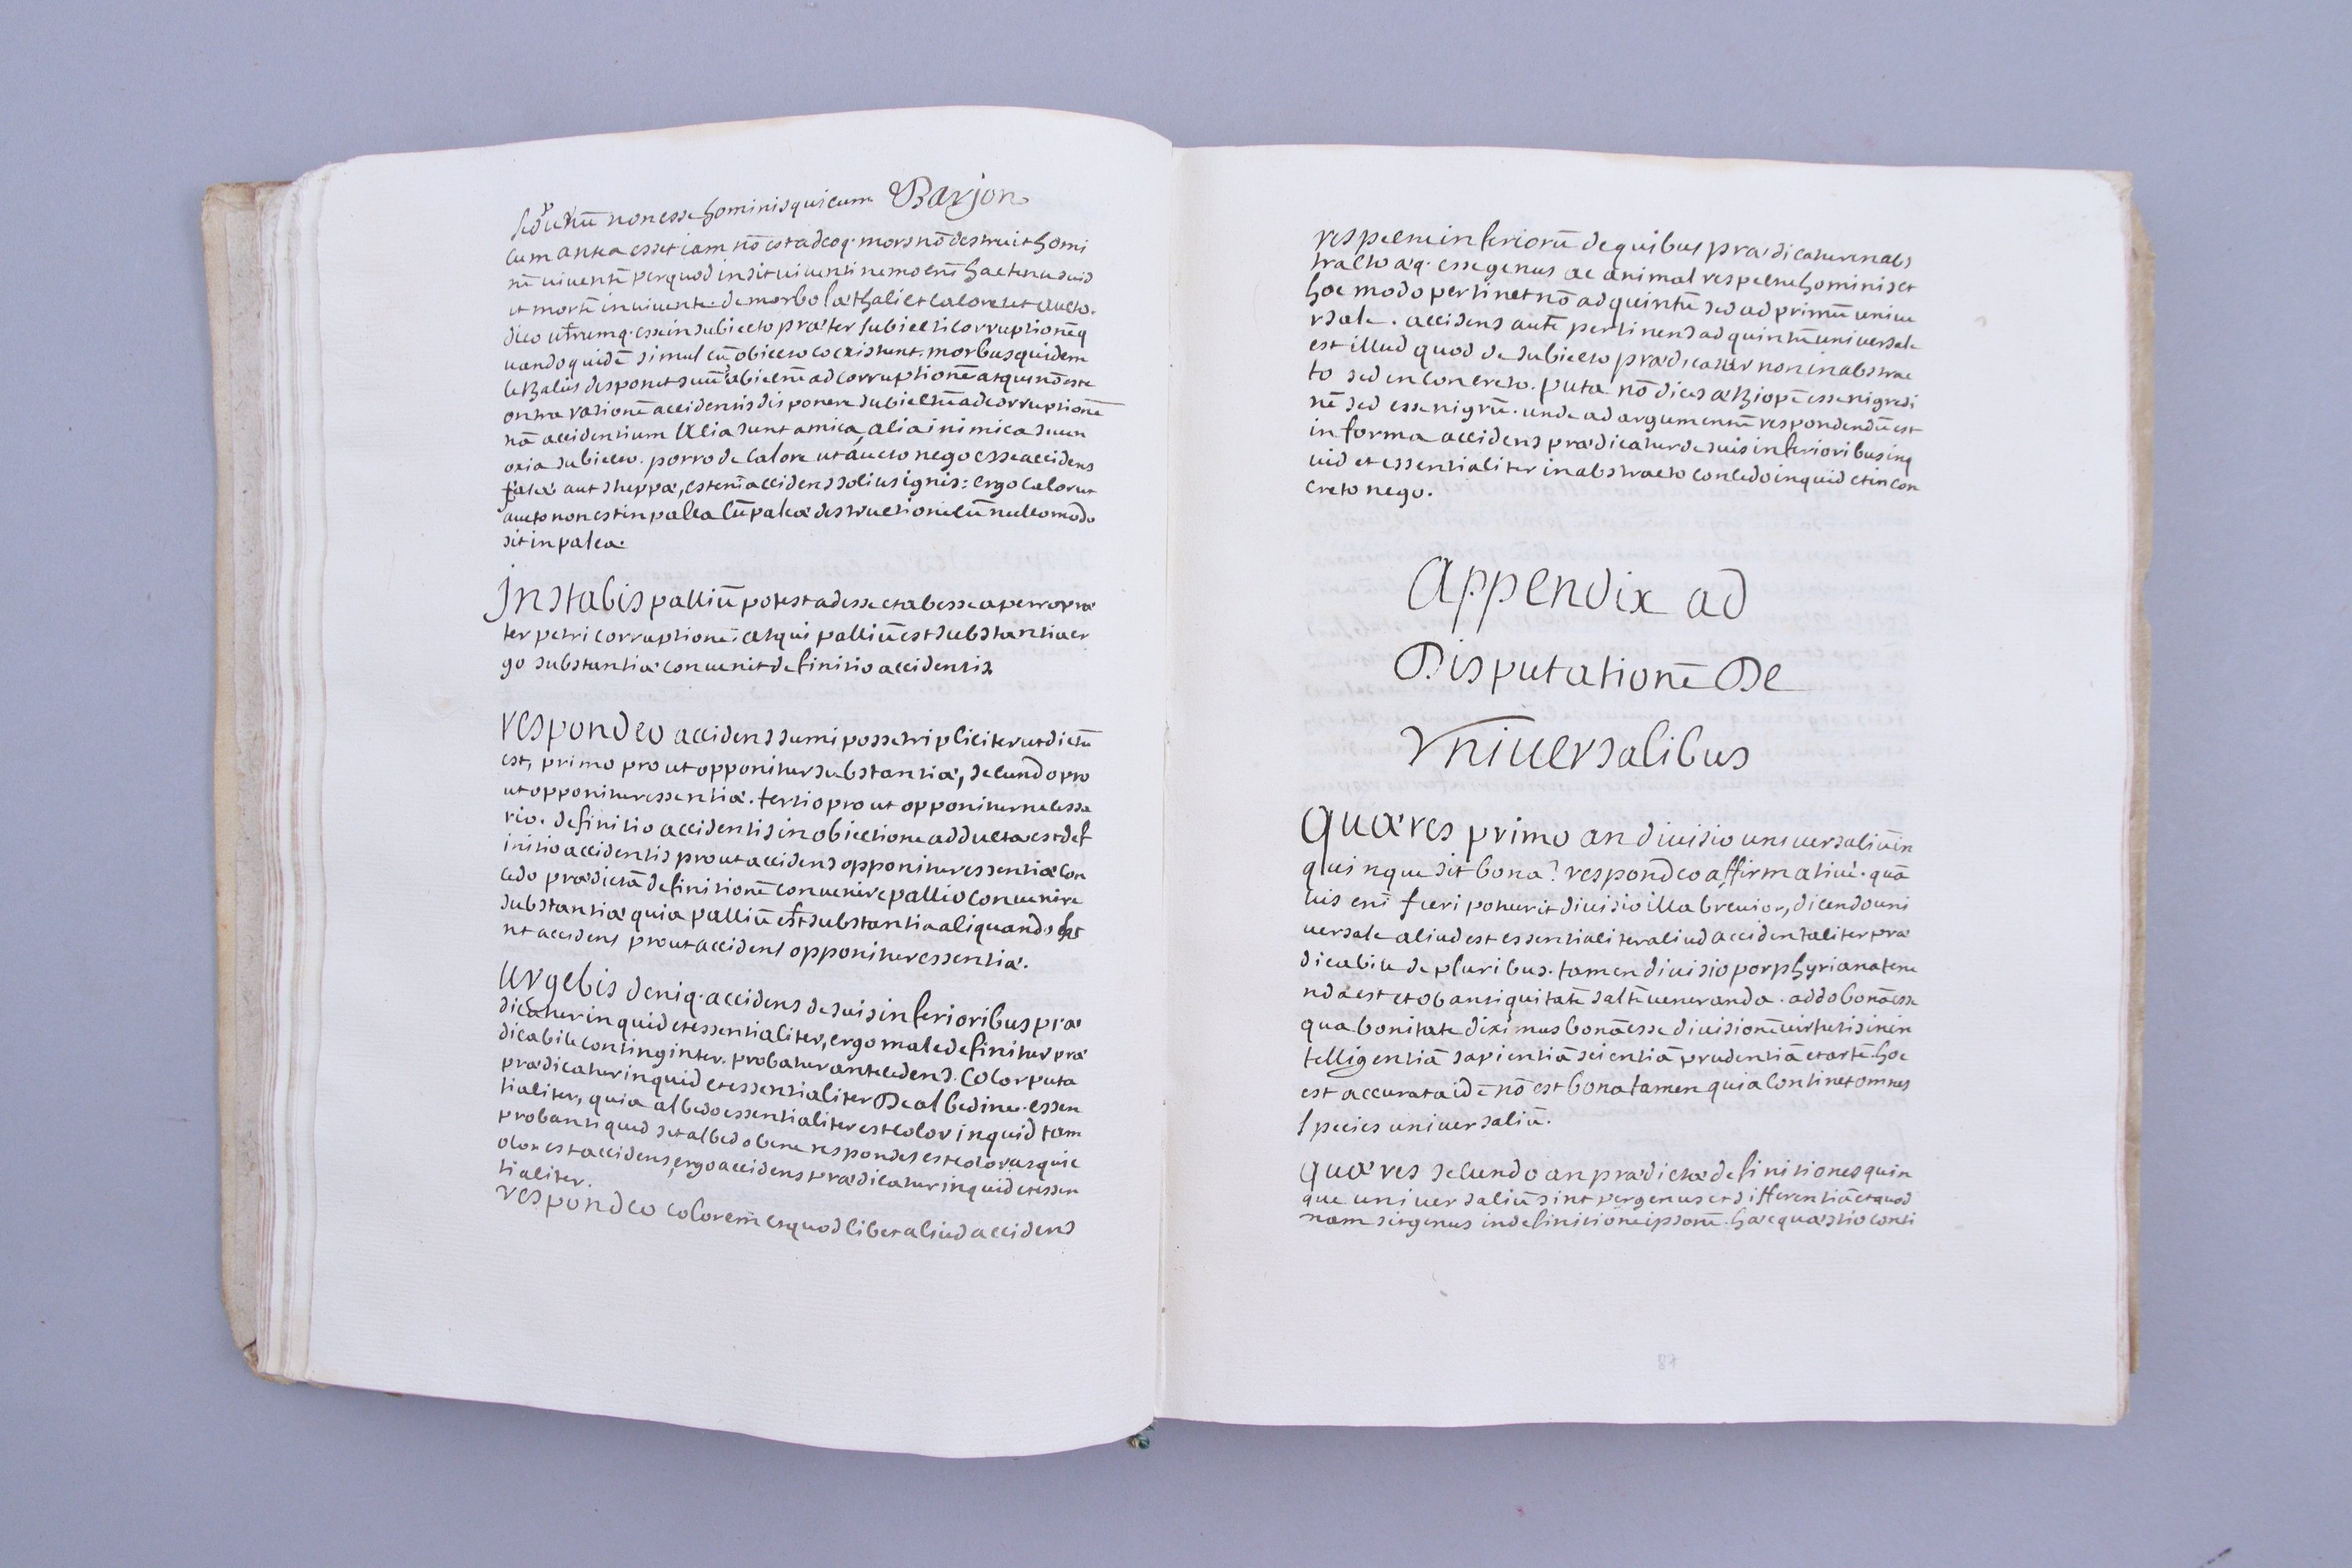 non esse hominis qui cum Barjon
cum antea esset iam nō est adeoq. mors nō destruit homi
nē uiuentē per quod insit uiuenti nemo enī hactenus uid
it mortē in uiuente. de morbo læthali et calore ut aucto.
dico utrumq. esse in subiecto præter subiecti corruptionē q
uandoquidē simul cū obiecto coexistunt. morbus quidem
lethalis disponit suū subiectū ad corruptionē atqui nō est c
ontra rationē accidentis disponere subiectū ad corruptionē
nā accidentium alia sunt amica, alia inimica suen
oxia subiecto. porro de calore ut aucto nego esse accidens
paleæ aut stuppæ, est enī accidens solius ignis: ergo calor ut
aucto non est in palea cū paleæ destructione cū nullo modo
sit in palea.
Instabis palliū potest adesse et abesse a petro præ
ter petri corruptionē: atqui palliū est substantia er
go substantiæ conuenit definitio accidentis.
respondeo accidens sumi posse tripliciter ut dictū
est, primo prout opponitur substantiæ, secundo pro
ut opponitur essentiæ. tertio prout opponitur necessa
rio. definitio accidentis in obiectione adducta est def
initio accidentis prout accidens opponitur essentiæ con
cedo prædictā definitionē conuenire pallio conuenire
substantiæ quia palliū est substantia aliquando
nt accidens prout accidens opponitur essentiæ.
urgebis deniq. accidens de suis inferioribus præ
dicatur in quid et essentialiter, ergo male definitur præ
dicabile continginter. probatur antecedens. color puta
prædicatur in quid et essentialiter De albedine. essen
tialiter, quia albedo essentialiter est color in quid tam
probanti quid sit albedo bene respondes est color atqui c
olor est accidens, ergo accidens prædicatur in quid et essen
tialiter.
respondeo colorem et quodlibet aliud accidens
respectu inferiorū de quibus prædicatur in abs
tracto æq. esse genus ac animal respectu hominis et
hoc modo pertinet nō ad quintū sed ad primū uniue
rsale. accidens autē pertinens ad quintū uniuersale
est illud quod de subiecto prædicatur non in abstrac
to sed in concreto. puta nō dices æthiopē esse nigredi
nē sed esse nigrū. unde ad argumentū respondendū est
in forma accidens prædicatur de suis inferioribus inq
uid et essentialiter in abstracto concedo in quid et in con
creto nego.
Appendix ad
Disputationē De
Vniuersalibus
Quæres primo an diuisio uniuersaliū in
quinque sit bona? respondeo affirmatiuè. quā
uis enī fieri potuerit diuisio illa breuior, dicendo uni
uersale aliud est essentialiter aliud accidentaliter præ
dicabile de pluribus. tamen diuisio porphyriana tene
nda est et ob antiquitatē saltē ueneranda. addo bonā esse
qua bonitate diximus bonā esse diuisionē uirtutis in in
telligentiā sapientiā scientiā prudentiā et artē. hoc
est accurata idē nō est bona tamen quia continet omnes
species uniuersaliū.
Quæres secundo an prædictæ definitiones quin
que uniuersaliū sint per genus et differentiā et quod
nam sit genus in definitione ipsorū. hæc quæstio conti
87